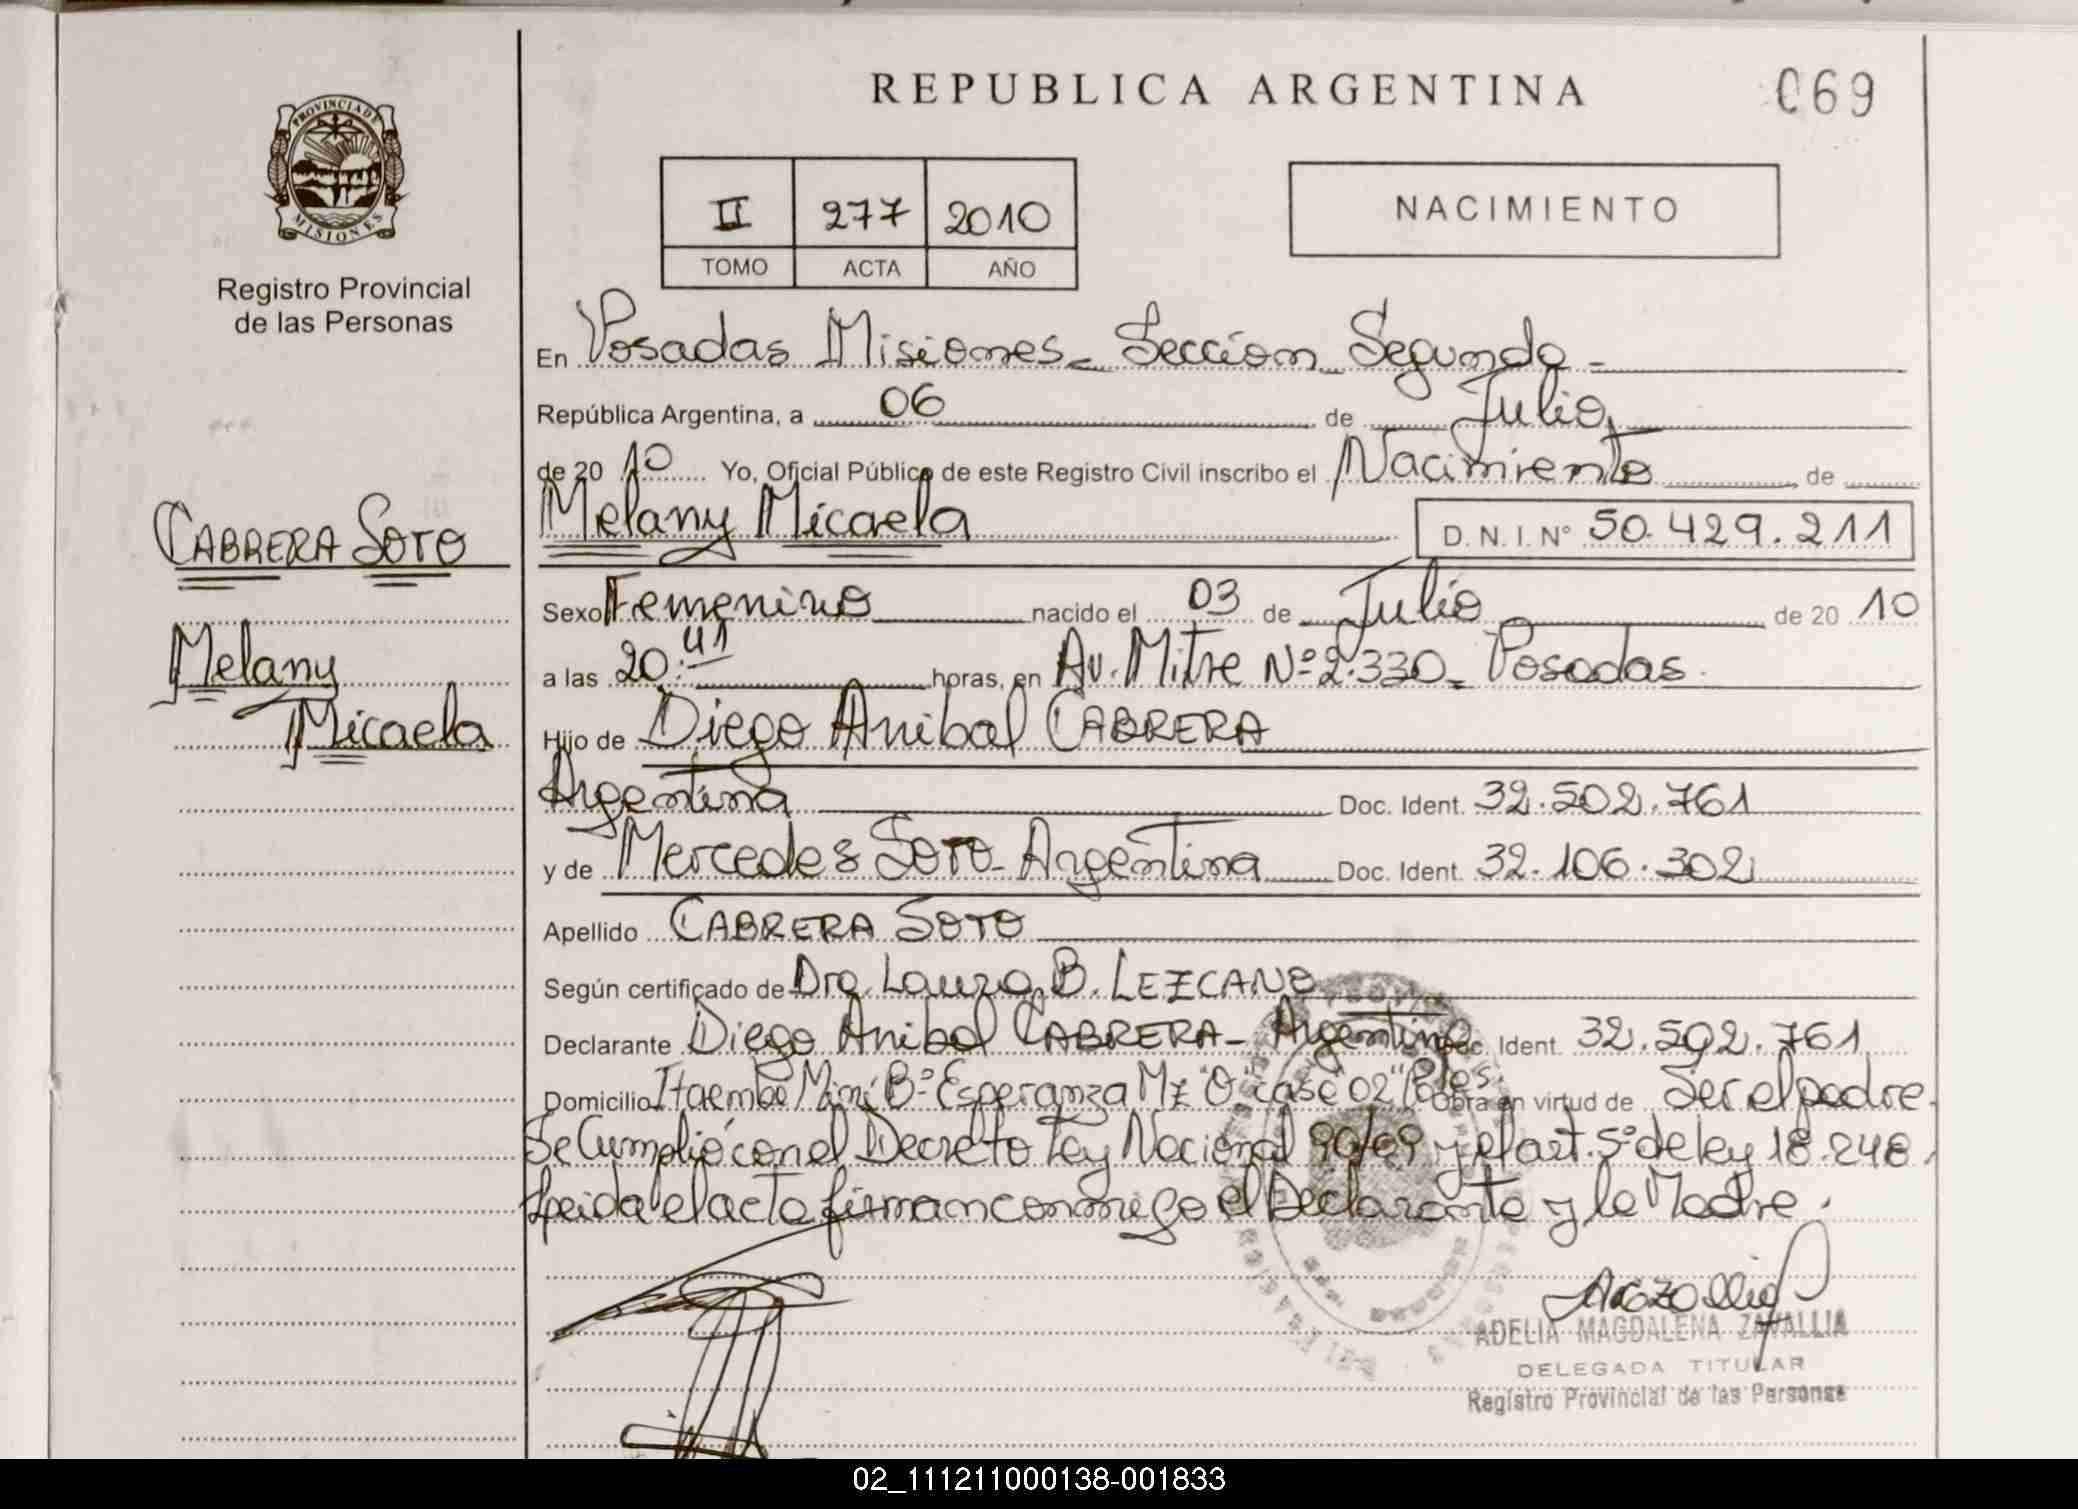 REPUBLICA ARGENTINA
069
PROVINCIA DE
MISIONES
Registro Provincial
de las Personas
II 277 2010
TOMO ACTA AÑO
NACIMIENTO
En Posadas Misiones - Sección Segunda -
República Argentina, a 06 de Julio
de 20 10 Yo, Oficial Público de este Registro Civil inscribo el Nacimiento de
CABRERA SOTO
Melany Micaela
D. N. I. Nº 50.429.211
Sexo Femenino nacido el 03 de Julio de 20 10
Melany
Micaela
a las 20:41 horas, en Av. Mitre Nº 2.330 - Posadas.
Hijo de Diego Anibal CABRERA
Argentina Doc. Ident. 32.502.761
y de Mercedes SOTO - Argentina Doc. Ident. 32.106.302
Apellido CABRERA SOTO
Según certificado de Dra. Laura B. LEZCANO
Declarante Diego Anibal CABRERA - Argentino Doc. Ident. 32.502.761
Domicilio Itaembe Mini Bº Esperanza Mz "O" casa "02" Obra en virtud de Ser el padre.
Se Cumplió con el Decreto Ley Nacional 90/09 y el art. 5º de ley 18.248.
Leida el acta firman conmigo el Declarante y la Madre.
ADELIA MAGDALENA ZAVALLIA
DELEGADA TITULAR
Registro Provincial de las Personas
02_111211000138-001833